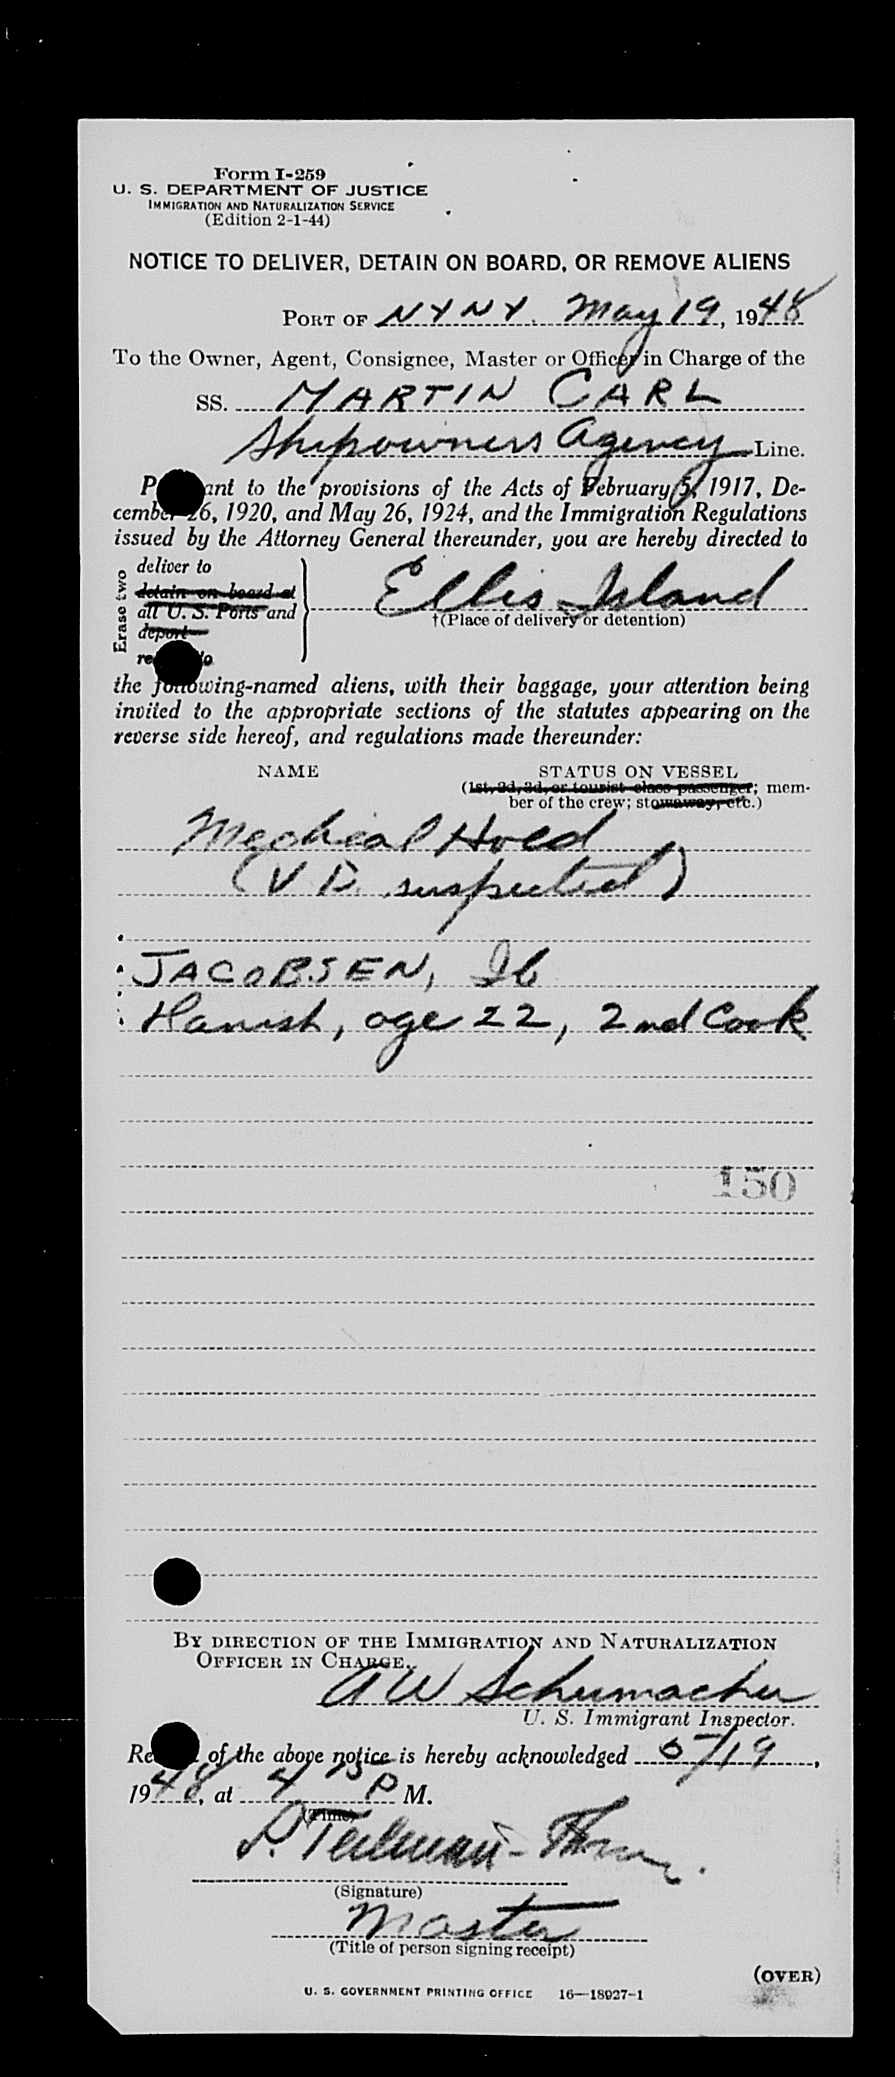 Form I-259
U. S. DEPARTMENT OF JUSTICE
IMMIGRATION AND NATURALIZATION SERVICE
(Edition 2-1-44)
NOTICE TO DELIVER, DETAIN ON BOARD, OR REMOVE ALIENS
PORT OF NYNY. May 19, 1948
To the Owner, Agent, Consignee, Master or Officer in Charge of the
SS. MARTIN CARL
Shipowners Agency Line.
P ant to the provisions of the Acts of February 5, 1917, De-
cember 26, 1920, and May 26, 1924, and the Immigration Regulations
issued by the Attorney General thereunder, you are hereby directed to
Erase two
deliver to
detain on board at
all U. S. Ports and
deport
re to
Ellis Island
†(Place of delivery or detention)
the following-named aliens, with their baggage, your attention being
invited to the appropriate sections of the statutes appearing on the
reverse side hereof, and regulations made thereunder:
NAME STATUS ON VESSEL
(1st, 2d, 3d, or tourist class passenger; mem-
ber of the crew; stowaway, etc.)
Medical Hold
(V D. suspected)
JACOBSEN, Ib
Danish, age 22, 2nd Cook
150
BY DIRECTION OF THE IMMIGRATION AND NATURALIZATION
OFFICER IN CHARGE.
A W Schumacher
U. S. Immigrant Inspector.
Re of the above notice is hereby acknowledged 5/19,
1948, at 4 15 P M.
(Time)
(Signature)
Master
(Title of person signing receipt)
(OVER)
U. S. GOVERNMENT PRINTING OFFICE 16—18927-1